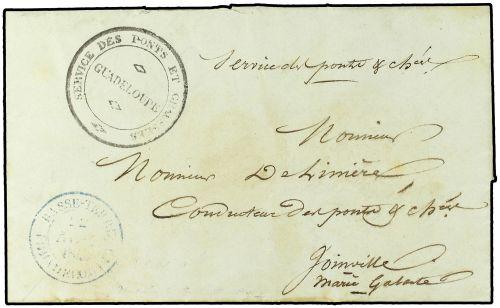 SERVICE DES PONTS ET CHAUSSÉES
GUADELOUPE
Service des ponts & chées
Monsieur
Monsieur De Limière
Conducteur des ponts & chées
Joinville
Marie Galante
BASSE-TERRE
12